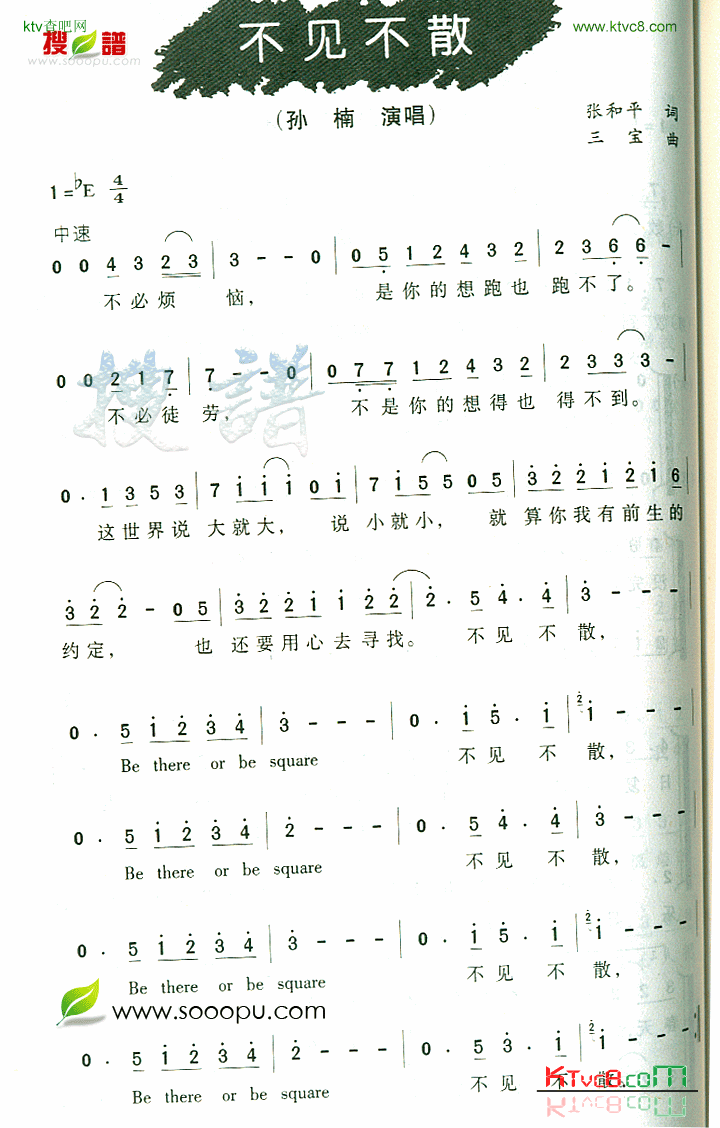 ktv查吧网
www.ktvc8.com
搜谱
www.sooopu.com
不见不散
(孙 楠 演唱)
张和平 词
三 宝 曲
1=♭E 4/4
中速
0 0 4 3 2 3 | 3 - - 0 | 0 5 1 2 4 3 2 | 2 3 6 6 -
不必烦 恼， 是你的想跑也 跑不了。
0 0 2 1 7 | 7 - - 0 | 0 7 7 1 2 4 3 2 | 2 3 3 3 -
搜譜
不必徒 劳， 不是你的想得也 得不到。
0 · 1 3 5 3 | 7 i i i 0 i | 7 i 5 5 0 5 | 3 2 2 i 2 i 6
这世界说 大就大， 说 小就小， 就 算你我有前生的
3 2 2 - 0 5 | 3 2 2 i i 2 2 | 2 · 5 4 · 4 | 3 - - -
约定， 也 还要用心去寻找。 不见 不 散，
0 · 5 i 2 3 4 | 3 - - - | 0 · i 5 · i | 2 i - - -
Be there or be square 不见 不 散，
0 · 5 i 2 3 4 | 2 - - - | 0 · 5 4 · 4 | 3 - - -
Be there or be square 不见 不 散，
0 · 5 i 2 3 4 | 3 - - - | 0 · i 5 · i | 2 i - - -
Be there or be square 不见 不 散，
www.sooopu.com
0 · 5 i 2 3 4 | 2 - - - | 0 · 5 3 · i | 2 i - - -
Be there or be square 不见 不 散，
KTvc8.com